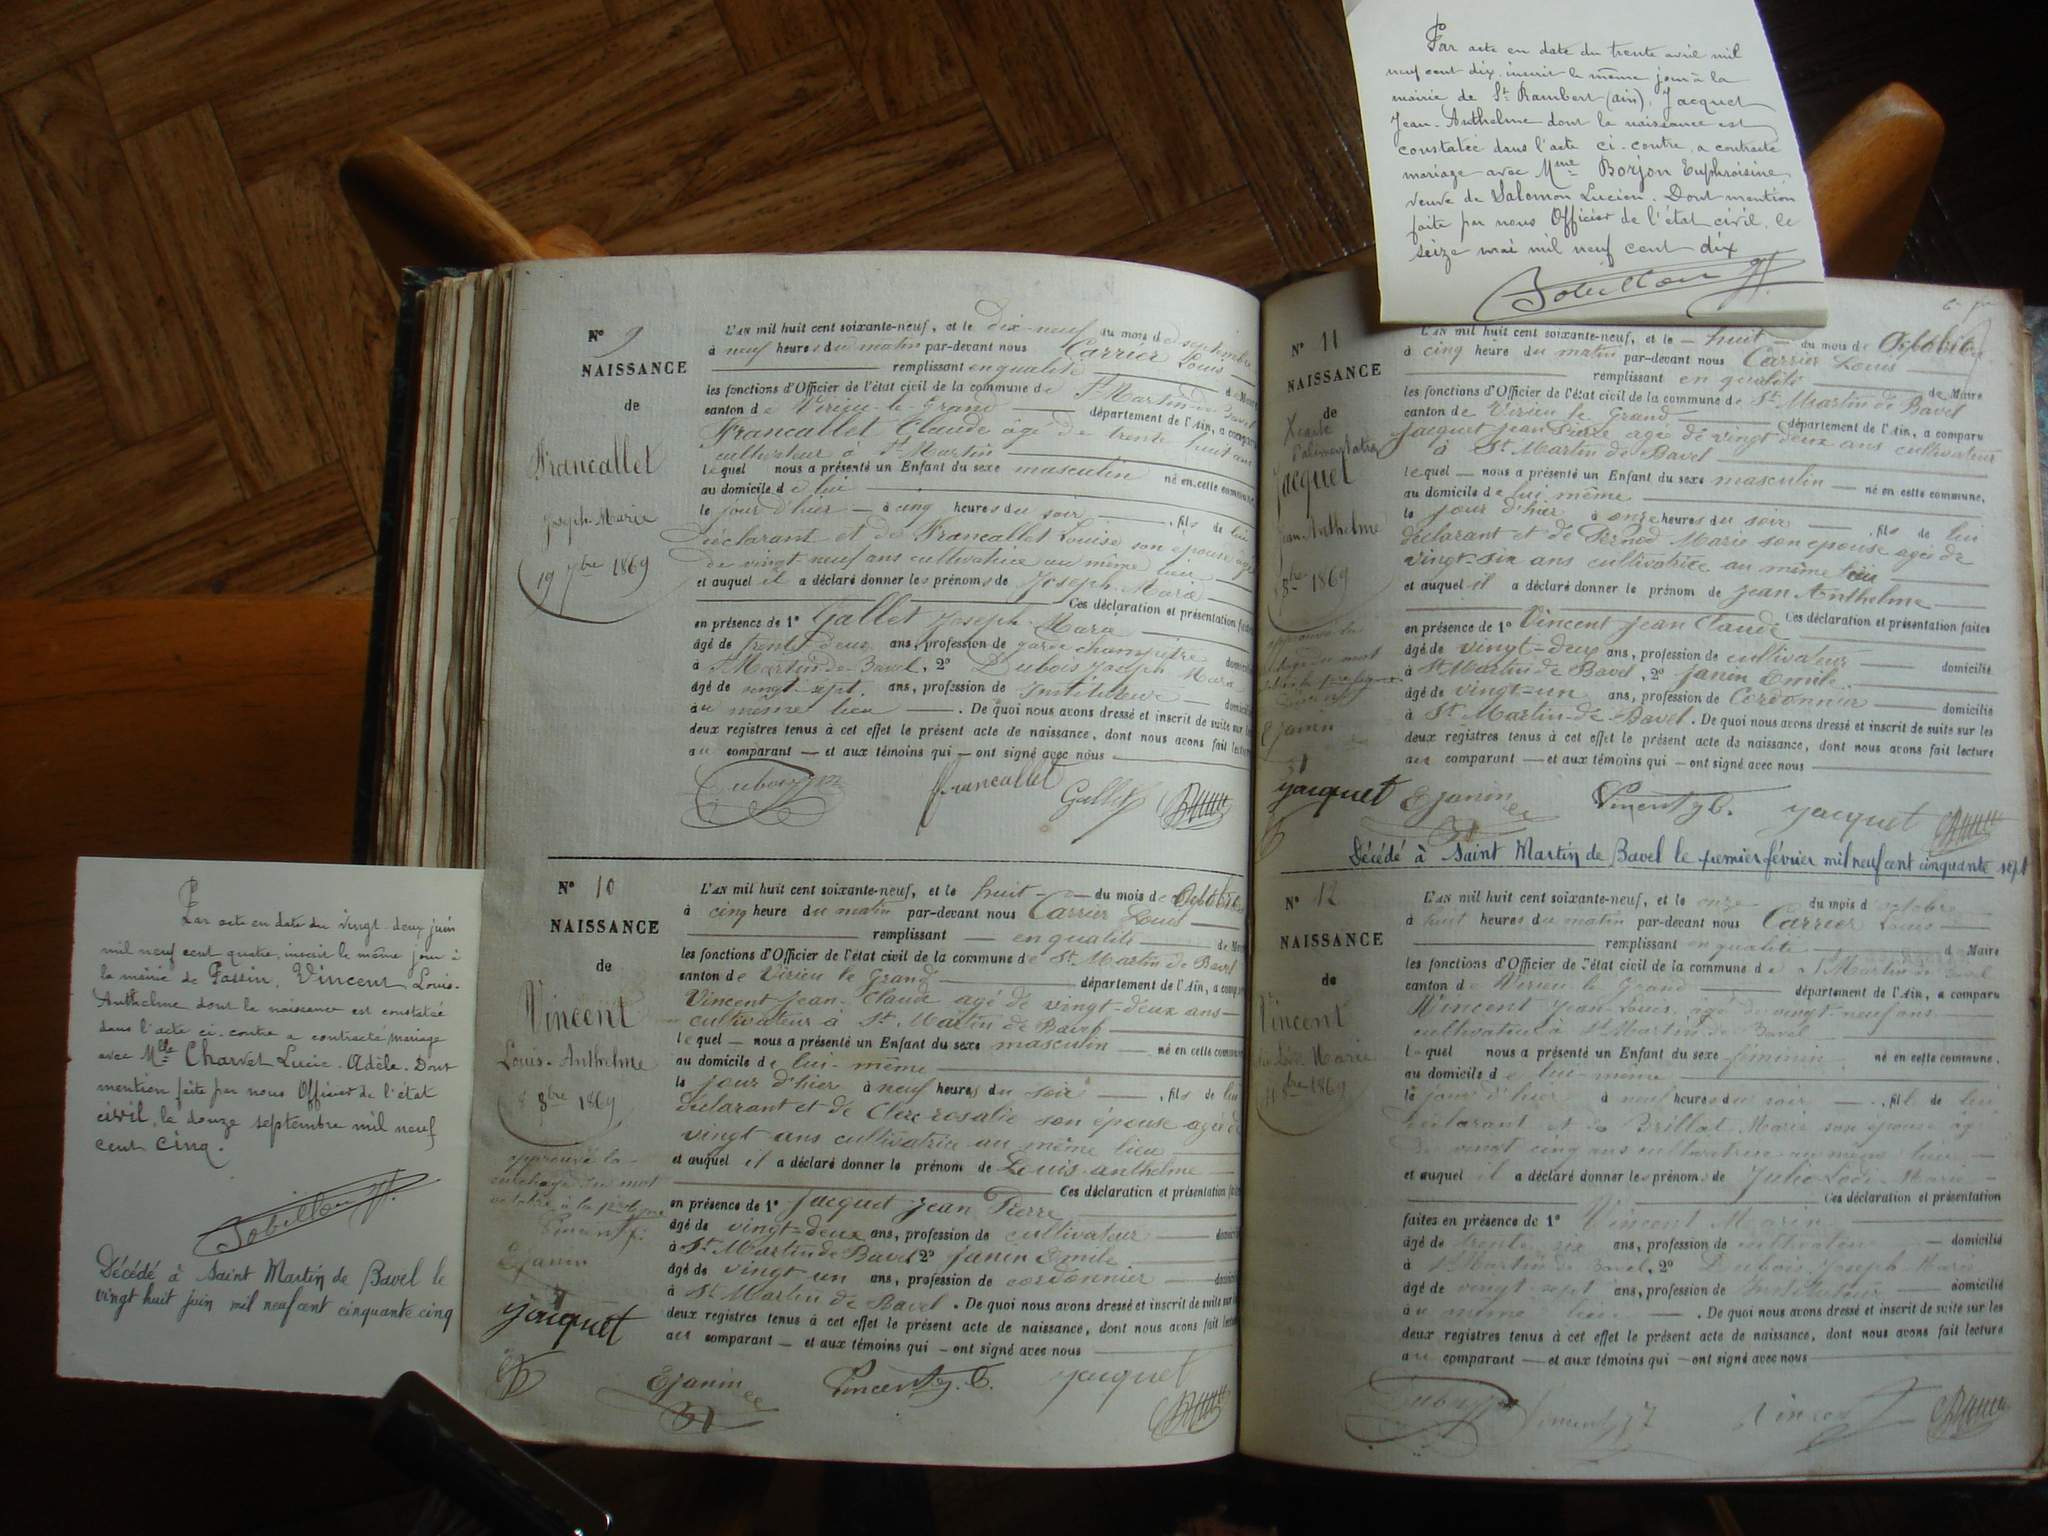 Par acte en date du trente avril mil
neuf cent dix, inscrit le même jour à la
mairie de St Rambert (ain), Jacquet
Jean-Anthelme dont la naissance est
constatée dans l'acte ci-contre, a contracté
mariage avec Mme Borjon Euphroisine,
veuve de Salomon Lucien. Dont mention
faite par nous Officier de l'état civil, le
seize mai mil neuf cent dix
N° 9
NAISSANCE
de
Francallet
Joseph-Marie
19 7bre 1869
L'AN mil huit cent soixante-neuf, et le dix-neuf du mois de septembre
à neuf heures du matin par-devant nous Carrier Louis
remplissant en qualité de Maire
les fonctions d'Officier de l'état civil de la commune de St Martin-de Bavel
canton de Virieu-le-Grand département de l'Ain, a comparu
Francallet Claude âgé de trente huit ans
cultivateur à St Martin
lequel nous a présenté un Enfant du sexe masculin né en cette commune
au domicile de lui
le jour d'hier à cinq heures du soir, fils de lui
déclarant et de Francallet Louise son épouse âgée
de vingt-neuf ans cultivatrice au même lieu
et auquel il a déclaré donner les prénoms de Joseph-Marie
Ces déclaration et présentation faites
en présence de 1° Gallet Joseph-Marie
âgé de trente deux ans, profession de garde champêtre domicilié
à St Martin-de-Bavel, 2° Dubois Joseph Marie
âgé de vingt-sept ans, profession de Instituteur domicilié
au même lieu. De quoi nous avons dressé et inscrit de suite sur les
deux registres tenus à cet effet le présent acte de naissance, dont nous avons fait lecture
au comparant — et aux témoins qui — ont signé avec nous
Francallet Gallet
N° 10
NAISSANCE
de
Vincent
Louis-Anthelme
8 8bre 1869
approuvé la
surcharge du mot
octobre à la 1re ligne
Ejanin
Jacquet
L'AN mil huit cent soixante-neuf, et le huit du mois de Octobre
à cinq heure du matin par-devant nous Carrier Louis
remplissant — en qualité de Maire
les fonctions d'Officier de l'état civil de la commune de St Martin de Bavel
canton de Virieu le Grand département de l'Ain, a comparu
Vincent Jean-Claude agé de vingt-deux ans
cultivateur à St Martin de Bavel
lequel — nous a présenté un Enfant du sexe masculin — né en cette commune
au domicile de lui-même
le jour d'hier à neuf heures du soir, fils de lui
déclarant et de Clerc rosalie son épouse agée de
vingt ans cultivatrice au même lieu
et auquel il a déclaré donner le prénom de Louis-anthelme
Ces déclaration et présentation faites
en présence de 1° Jacquet Jean Pierre
âgé de vingt-deux ans, profession de cultivateur domicilié
à St Martin de Bavel 2° Janin Emile
âgé de vingt un ans, profession de cordonnier domicilié
à St Martin de Bavel. De quoi nous avons dressé et inscrit de suite sur les
deux registres tenus à cet effet le présent acte de naissance, dont nous avons fait lecture
au comparant — et aux témoins qui - ont signé avec nous
Ejanin Vincent J. C. Jacquet
Par acte en date du vingt-deux juin
mil neuf cent quatre, inscrit le même jour à
la mairie de Passin, Vincent Louis-
Anthelme dont la naissance est constatée
dans l'acte ci-contre a contracté mariage
avec Mlle Charvet Lucie-Adèle. Dont
mention faite par nous Officier de l'état
civil, le douze septembre mil neuf
cent cinq.
Décédé à Saint Martin de Bavel le
vingt huit juin mil neuf cent cinquante cinq
N° 11
NAISSANCE
de
Jacquet
Jean-Anthelme
8bre 1869
approuvé la
Ejanin
Jacquet
L'AN mil huit cent soixante-neuf, et le — huit — du mois de Octobre
à cinq heure du matin par-devant nous Carrier Louis
remplissant en qualité de Maire
les fonctions d'Officier de l'état civil de la commune de St Martin de Bavel
canton de Virieu le Grand département de l'Ain, a comparu
Jacquet Jean Pierre agé de vingt deux ans cultivateur
à St Martin de Bavel
lequel — nous a présenté un Enfant du sexe masculin — né en cette commune,
au domicile de lui même
le jour d'hier à onze heures du soir, fils de lui
déclarant et de Pernod Marie son épouse agée de
vingt-six ans cultivatrice au même lieu
et auquel il a déclaré donner le prénom de Jean Anthelme
Ces déclaration et présentation faites
en présence de 1° Vincent Jean Claude
âgé de vingt-deux ans, profession de cultivateur domicilié
à St Martin de Bavel, 2° Janin Emile
âgé de vingt-un ans, profession de Cordonnier domicilié
à St Martin-de Bavel. De quoi nous avons dressé et inscrit de suite sur les
deux registres tenus à cet effet le présent acte de naissance, dont nous avons fait lecture
au comparant — et aux témoins qui — ont signé avec nous
Ejanin Vincent J C. Jacquet
Décédé à Saint Martin de Bavel le premier février mil neuf cent cinquante sept
N° 12
NAISSANCE
de
Vincent
Marie
11 8bre 1869
L'AN mil huit cent soixante-neuf, et le onze du mois d octobre
à huit heures du matin par-devant nous Carrier Louis
remplissant en qualité de Maire
les fonctions d'Officier de l'état civil de la commune de St Martin de Bavel
canton de Virieu le Grand département de l'Ain, a comparu
Vincent Jean-Louis, âgé de vingt-neuf ans
cultivateur à St Martin de Bavel
lequel nous a présenté un Enfant du sexe féminin, né en cette commune,
au domicile de lui-même
le jour d'hier à neuf heures du soir, fil de lui
déclarant et de Brillat Marie son épouse
de vingt cinq ans cultivatrice au même lieu
et auquel il a déclaré donner les prénoms de Marie
Ces déclaration et présentation
faites en présence de 1° Vincent Marin
âgé de trente six ans, profession de cultivateur domicilié
à St Martin de Bavel, 2° Dubois Joseph Marie
âgé de vingt-sept ans, profession de Instituteur domicilié
au même lieu. De quoi nous avons dressé et inscrit de suite sur les
deux registres tenus à cet effet le présent acte de naissance, dont nous avons fait lecture
au comparant — et aux témoins qui — ont signé avec nous